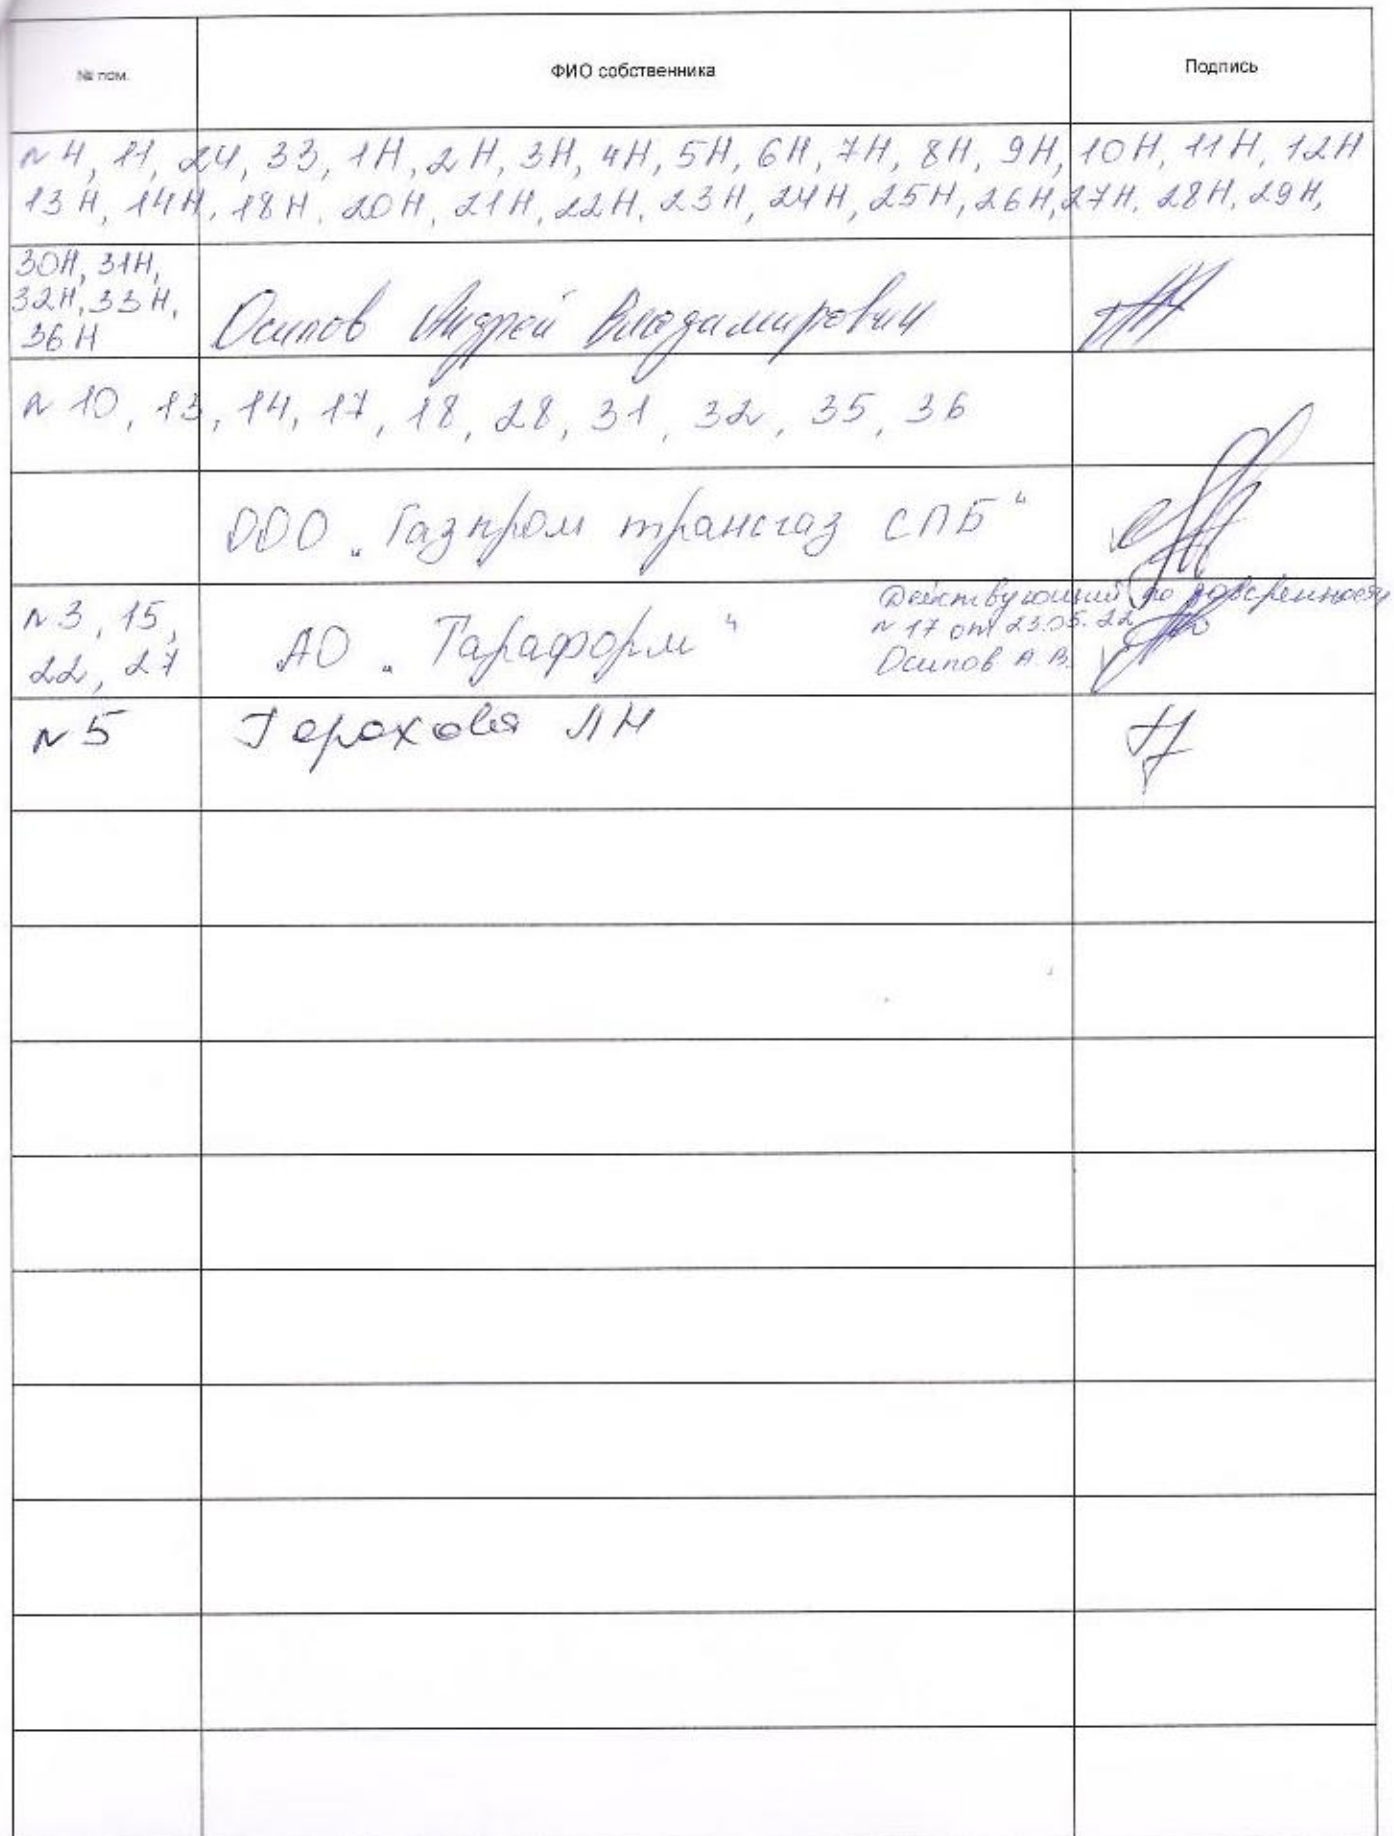 № пом.
ФИО собственника
Подпись
№ 4, 11, 24, 33, 1Н, 2Н, 3Н, 4Н, 5Н, 6Н, 7Н, 8Н, 9Н, 10Н, 11Н, 12Н
13Н, 14Н, 18Н, 20Н, 21Н, 22Н, 23Н, 24Н, 25Н, 26Н, 27Н, 28Н, 29Н,
30Н, 31Н,
32Н, 33Н,
36Н
Осипов Андрей Владимирович
№ 10, 13, 14, 17, 18, 28, 31, 32, 35, 36
ООО „Газпром трансгаз СПБ“
№ 3, 15,
22, 27
АО „Тараформ“
Действующий по доверенности
№ 17 от 23.05.22
Осипов А.В.
№ 5
Горохова ЛН